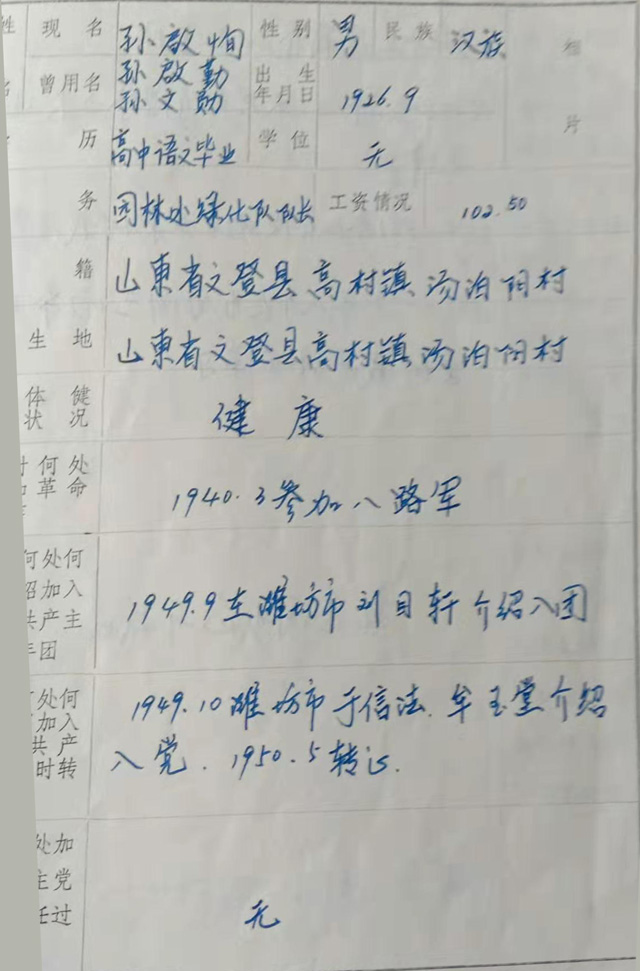 姓 现名 孙启恂 性别 男 民族 汉族 相
名 曾用名 孙啟勤 孙文勋 出生年月日 1926.9 片
历 高中语文毕业 学位 无
务 园林处绿化队队长 工资情况 102.50
籍 山東省文登县高村镇汤泊阳村
生地 山東省文登县高村镇汤泊阳村
体健
状况 健康
何处
革命 1940.3参加八路军
何处何
绍加入
共产主 1949.9在潍坊市刘目轩介绍入团
年团
处何
加入 1949.10潍坊市于信法.牟玉堂介绍
共产
时转 入党.1950.5转正.
处加
主党
任过 无